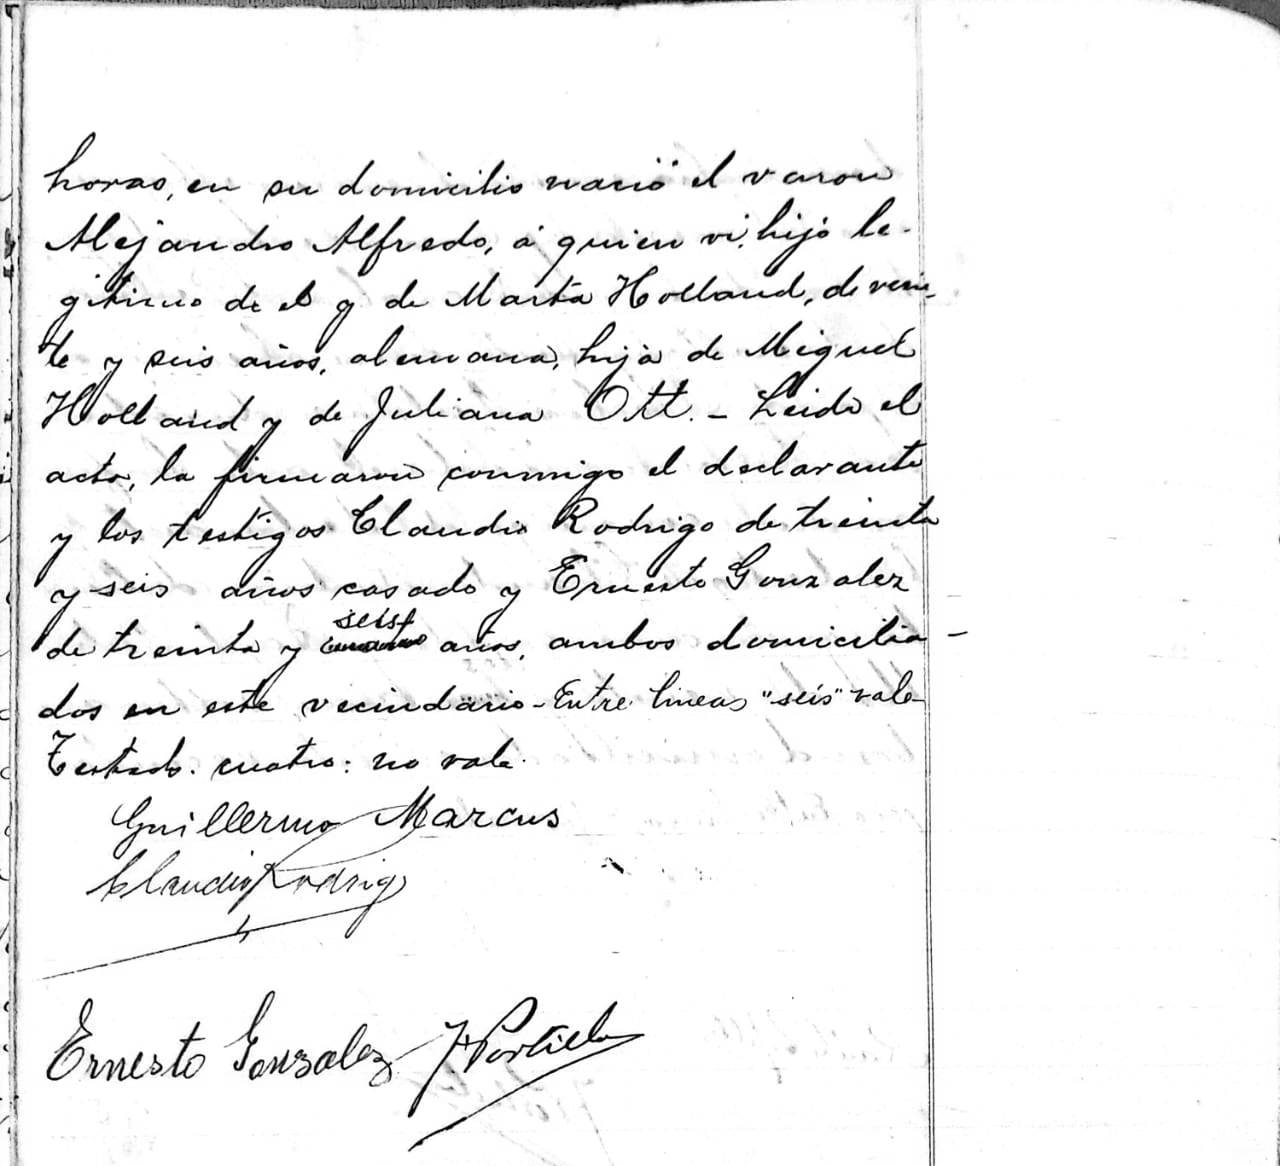 horas, en su domicilio nació el varon
Alejandro Alfredo, á quien vi, hijo le-
gitimo de el y de Marta Holland, de vein-
te y seis años, alemana, hija de Miguel
Holland y de Juliana Ott. - Leida el
acta, la firmaron conmigo el declarante
y los testigos Claudio Rodrigo de treinta
y seis años casado y Ernesto Gonzalez
seis
de treinta y cuatro años, ambos domicilia-
dos en este vecindario - Entre lineas "seis" vale
Testado: cuatro: no vale.
Guillermo Marcus
Claudio Rodrigo
Ernesto Gonzalez